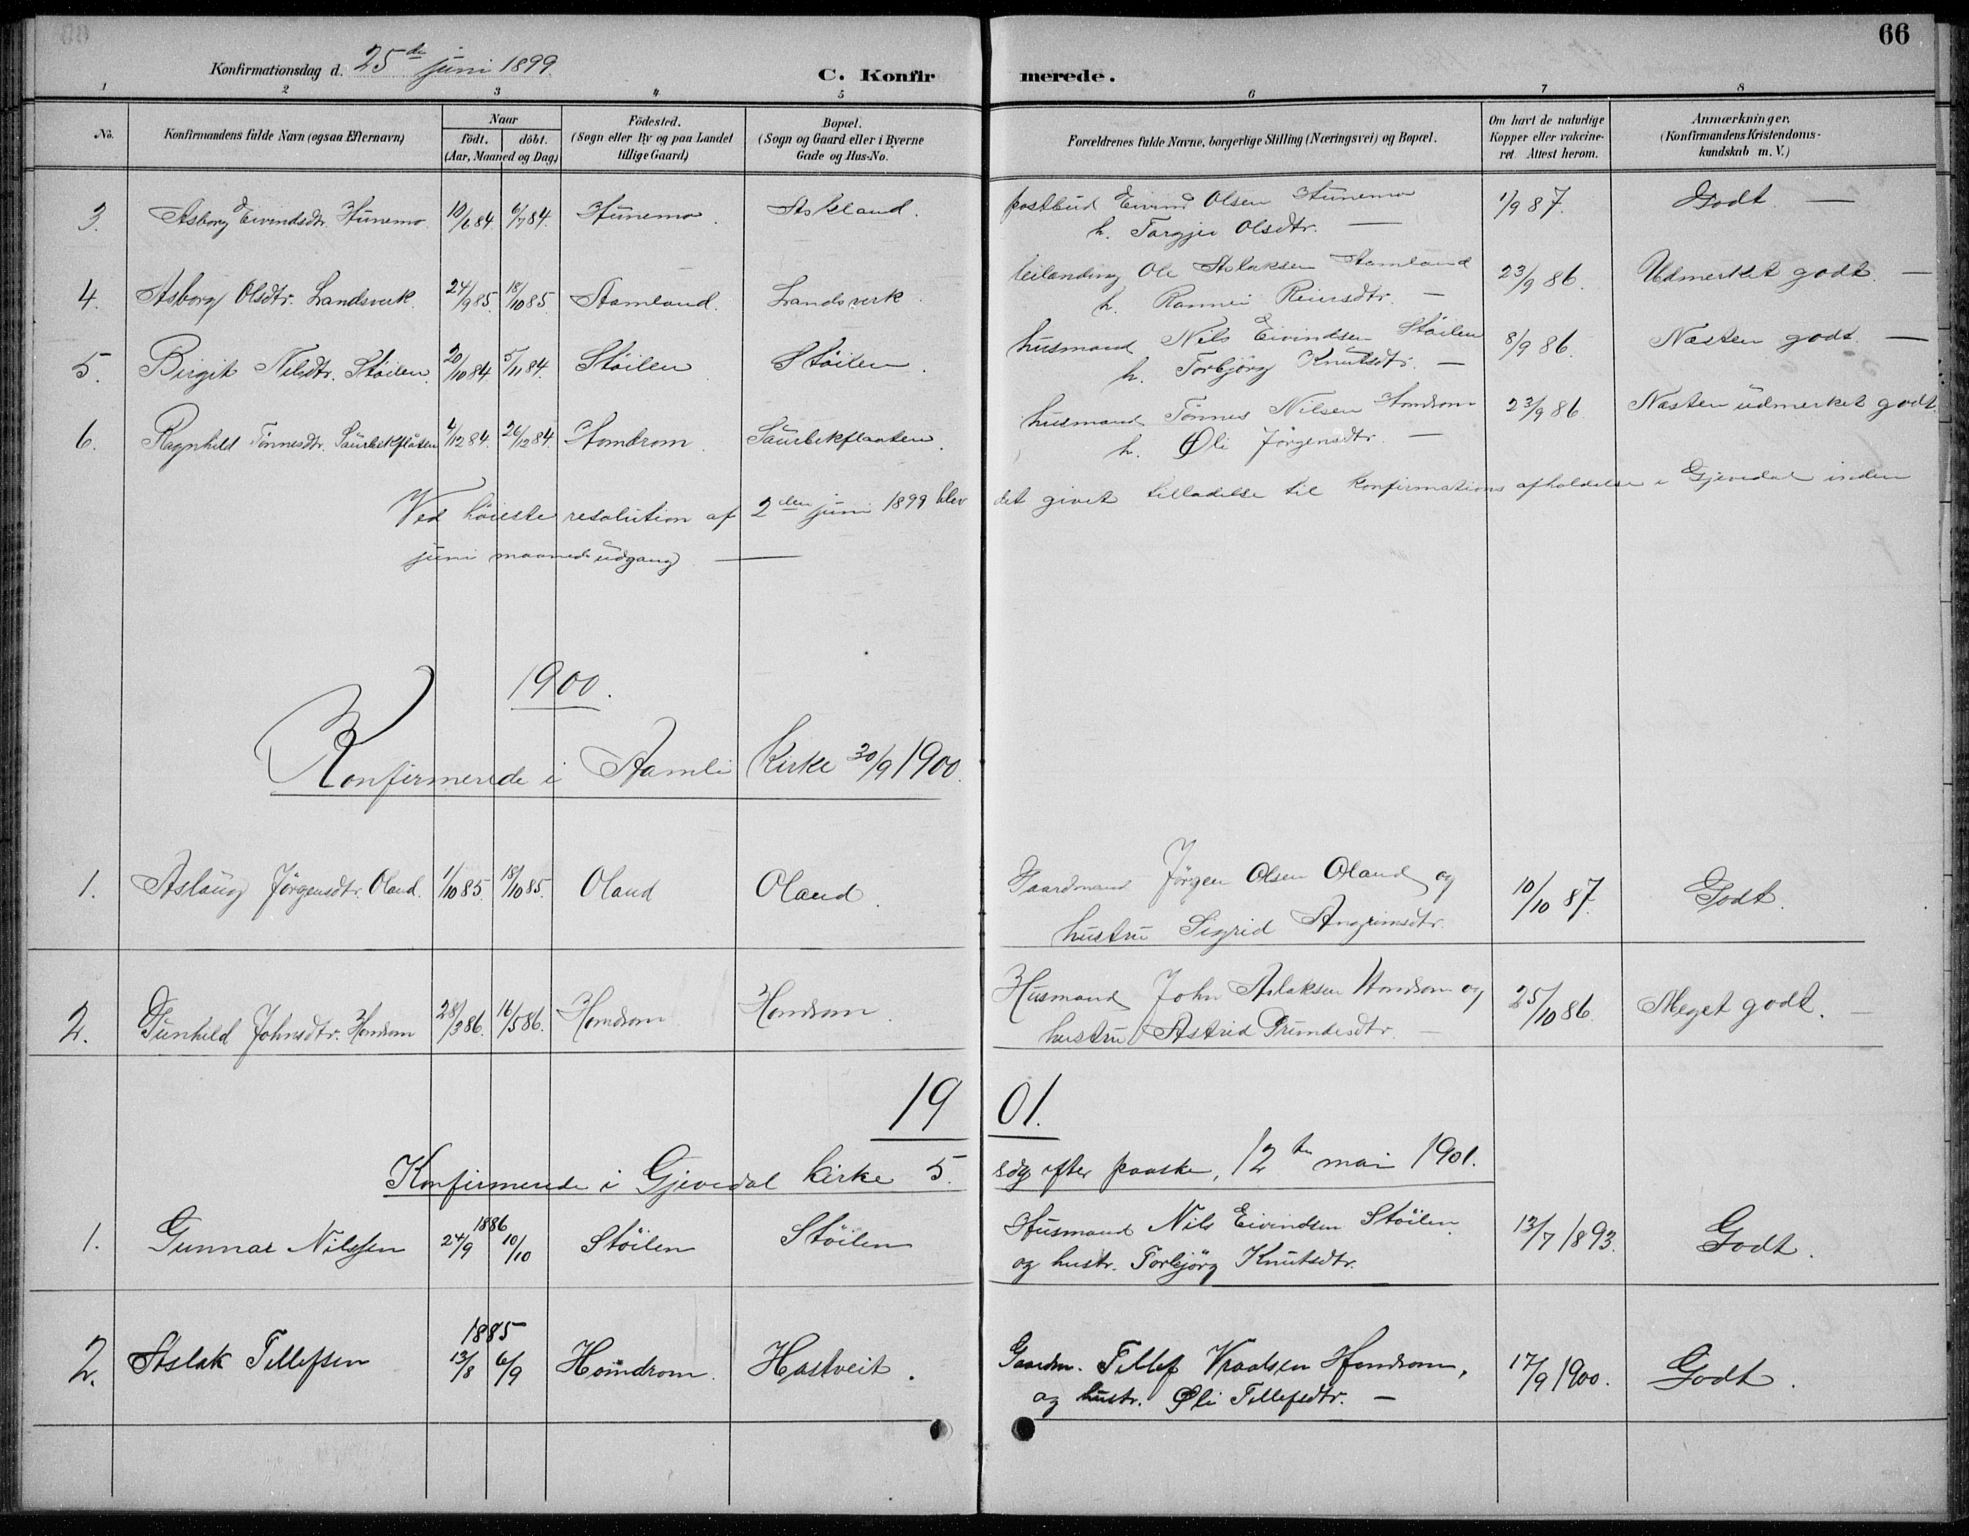 66
Konfirmationsdag d. 25de juni 1899.
C. Konfirmerede.
1 2 3 4 5 6 7 8
No.
Konfirmandens fulde Navn (ogsaa Efternavn)
Naar
født. døbt.
(Aar, Maaned og Dag)
Fødested.
(Sogn eller By og paa Landet
tillige Gaard)
Bopæl.
(Sogn og Gaard eller i Byerne
Gade og Hus-No.
Forældrenes fulde Navne, borgerlige Stilling (Næringsvei) og Bopæl.
Om havt de naturlige
Kopper eller vakcine-
ret Attest herom.
Anmærkninger.
(Konfirmandens Kristendoms-
kundskab m. V.)
3. Asborg Eivindsdtr. Hunemo. 10/6 84. 6/7 84. Hunemo. Askland. postbud Eivind Olsen Hunemo 1/9 87. Godt —
h. Torgjer Olsdtr. —
4. Asborg Olsdtr. Landsverk 24/9 85. 18/10 85. Aamland. Landsverk. leilending Ole Aslaksen Aamland 23/9 86. Udmerket godt. —
h. Rannei Reiersdtr. —
5. Birgit Nilsdtr. Støilen. 20/10 84. 5/11 84. Støilen Støilen. husmand Nils Eivindsen Støilen 8/9 86. Næsten godt. —
h. Torbjörg Knutsdtr. —
6. Ragnhild Tönnesdtr. Saurbekflaaten 4/12 84. 26/12 84. Homdrom. Saurbekflaaten. husmand Tönnes Nilsen Homdrom 23/9 86. Næsten udmerket godt
h. Øli Jörgensdtr. —
Ved höieste resolution af 2den juni 1899 blev det givet tilladelse til konfirmations afholdelse i Gjevedal inden
juni maaneds udgang —
1900.
Konfirmerede i Aamli Kirke 30/9 1900.
1. Aslaug Jörgensdtr. Oland. 1/10 85. 18/10 85. Oland Oland. Gaardmand Jörgen Olsen Oland og 10/10 87. Godt.
hustru Sigrid Angrimsdtr.
2. Gunhild Johnsdtr. Homdrom 28/3 86. 16/5 86. Homdrom Homdrom. Husmand John Aslaksen Homdrom og 25/10 86. Meget godt. —
hustru Astrid Trundesdtr. —
1901.
Konfirmerede i Gjevedal kirke 5. sdg efter paaske, 12te mai 1901.
1. Gunnar Nilssen 1886 24/9 10/10 Støilen Støilen Husmand Nils Eivindsen Støilen. 13/7 1893. Godt.
og hustr. Torbjörg Knutsdtr.
2. Aslak Tellefsen 1885 13/8 6/9 Homdrom. Hastveit. Gaardm. Tellef Vraalsen Homdrom, 17/9 1900. Godt.
og hustr. Øli Tellefsdtr. —